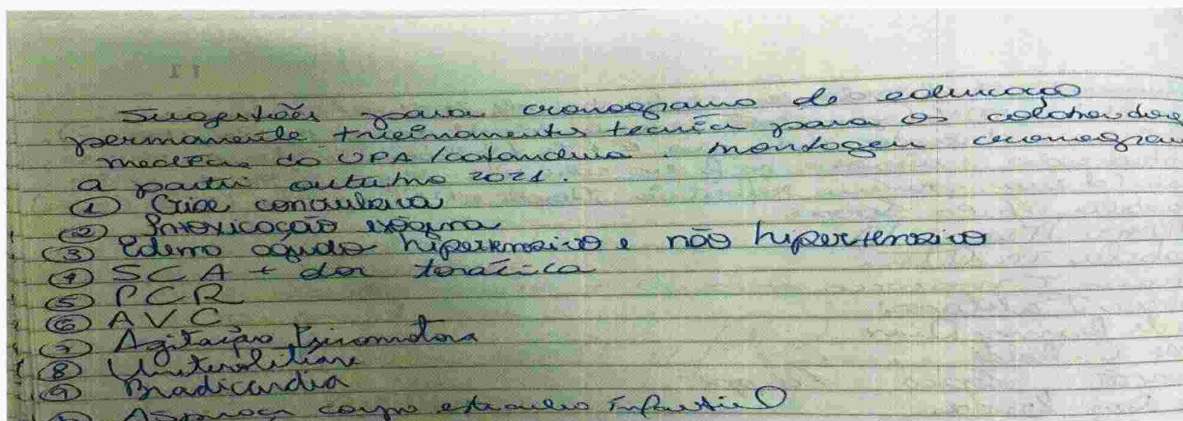 Sugestões para cronograma de educação
permanente treinamentos tecnica para os
do UPA / montagem
a partir outubro 2021.
① Crise convulsiva
② Intoxicação exógena
③ Edema agudo hipertensivo e não hipertensivo
④ SCA + dor torácica
⑤ PCR
⑥ AVC
⑦ Agitação Psicomotora
⑧
⑨ Bradicardia
corpo estranho infantil